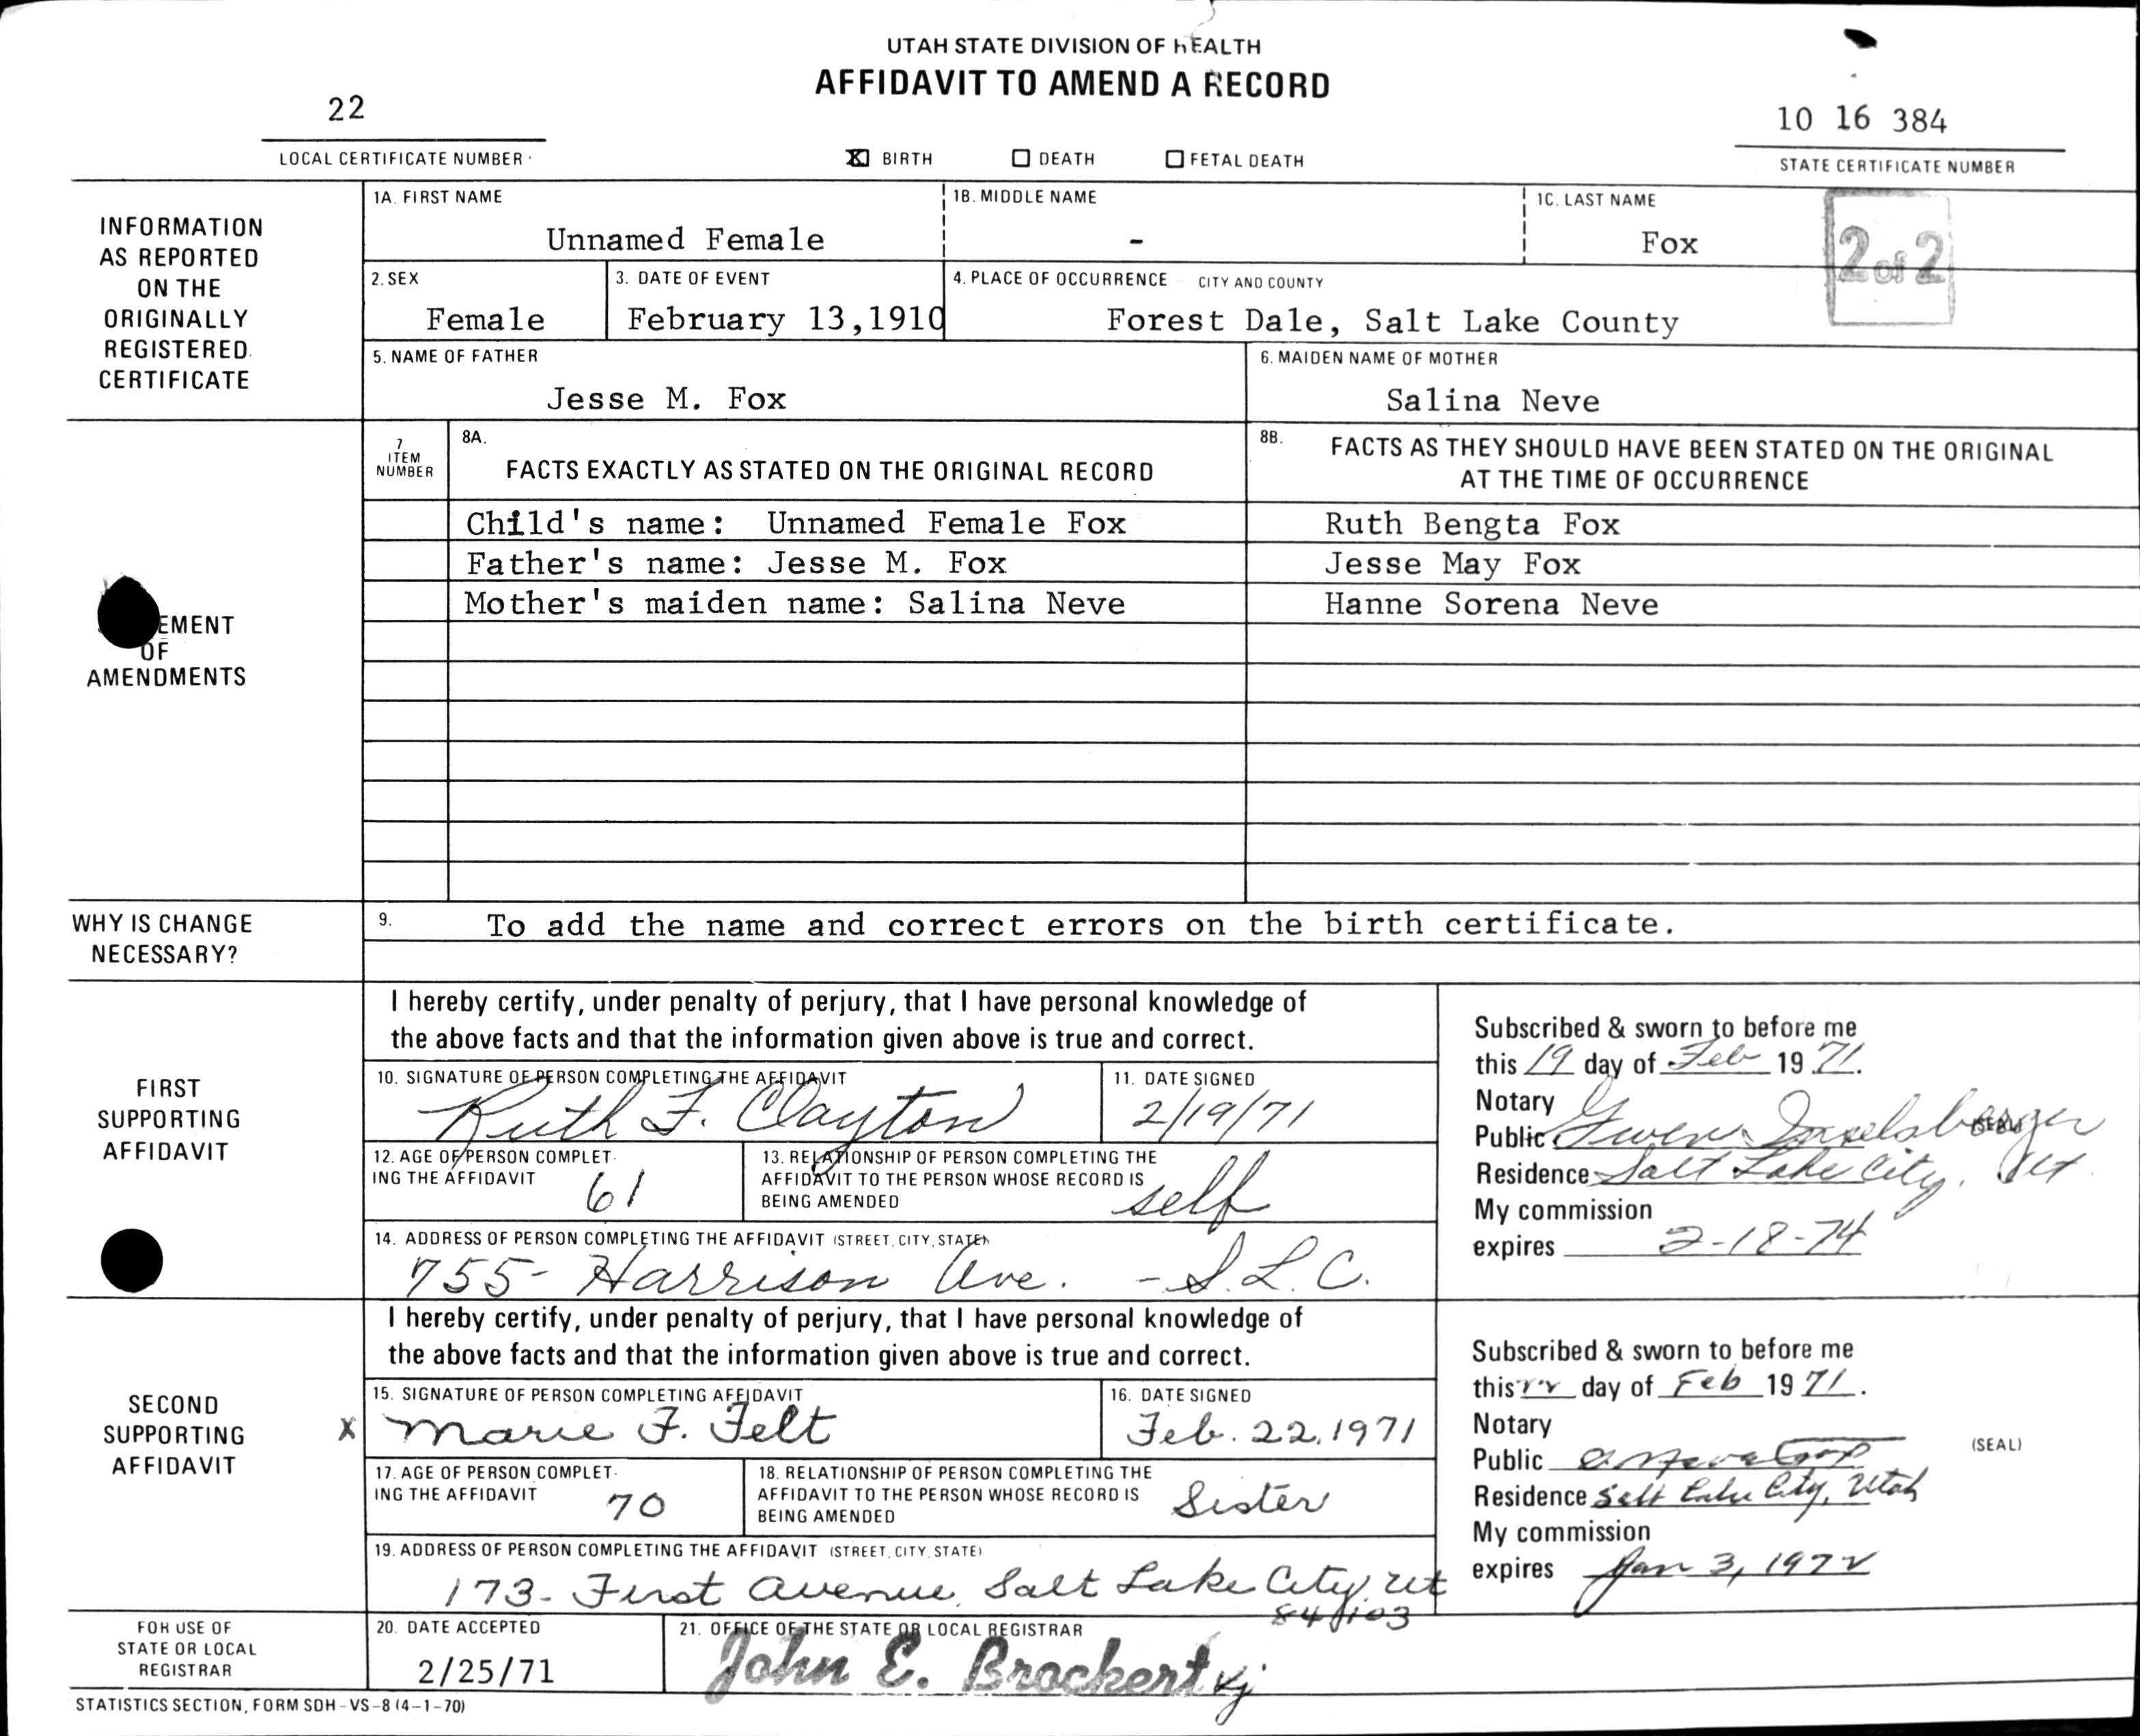 UTAH STATE DIVISION OF HEALTH
AFFIDAVIT TO AMEND A RECORD
22
10 16 384
LOCAL CERTIFICATE NUMBER
X BIRTH DEATH FETAL DEATH
STATE CERTIFICATE NUMBER
INFORMATION AS REPORTED ON THE ORIGINALLY REGISTERED CERTIFICATE
1A. FIRST NAME
Unnamed Female
1B. MIDDLE NAME
-
1C. LAST NAME
Fox
2 of 2
2. SEX
Female
3. DATE OF EVENT
February 13,1910
4. PLACE OF OCCURRENCE CITY AND COUNTY
Forest Dale, Salt Lake County
5. NAME OF FATHER
Jesse M. Fox
6. MAIDEN NAME OF MOTHER
Salina Neve
EMENT
OF
AMENDMENTS
7
ITEM
NUMBER
8A.
FACTS EXACTLY AS STATED ON THE ORIGINAL RECORD
8B. FACTS AS THEY SHOULD HAVE BEEN STATED ON THE ORIGINAL
AT THE TIME OF OCCURRENCE
Child's name: Unnamed Female Fox
Ruth Bengta Fox
Father's name: Jesse M. Fox
Jesse May Fox
Mother's maiden name: Salina Neve
Hanne Sorena Neve
WHY IS CHANGE
NECESSARY?
9. To add the name and correct errors on the birth certificate.
FIRST
SUPPORTING
AFFIDAVIT
I hereby certify, under penalty of perjury, that I have personal knowledge of
the above facts and that the information given above is true and correct.
10. SIGNATURE OF PERSON COMPLETING THE AFFIDAVIT
Ruth F. Clayton
11. DATE SIGNED
2/19/71
12. AGE OF PERSON COMPLET-
ING THE AFFIDAVIT 61
13. RELATIONSHIP OF PERSON COMPLETING THE
AFFIDAVIT TO THE PERSON WHOSE RECORD IS
BEING AMENDED self
14. ADDRESS OF PERSON COMPLETING THE AFFIDAVIT (STREET, CITY, STATE)
755- Harrison Ave. - S.L.C.
Subscribed & sworn to before me
this 19 day of Feb 19 71.
Notary
Public Gwen
Residence Salt Lake City, Ut
My commission
expires 2-18-74
SECOND
SUPPORTING
AFFIDAVIT
I hereby certify, under penalty of perjury, that I have personal knowledge of
the above facts and that the information given above is true and correct.
15. SIGNATURE OF PERSON COMPLETING AFFIDAVIT
X Marie F. Felt
16. DATE SIGNED
Feb. 22, 1971
17. AGE OF PERSON COMPLET-
ING THE AFFIDAVIT 70
18. RELATIONSHIP OF PERSON COMPLETING THE
AFFIDAVIT TO THE PERSON WHOSE RECORD IS
BEING AMENDED Sister
19. ADDRESS OF PERSON COMPLETING THE AFFIDAVIT (STREET, CITY, STATE)
173- First Avenue, Salt Lake City, Ut
84103
Subscribed & sworn to before me
this 22 day of Feb 19 71.
Notary
Public
(SEAL)
Residence Salt Lake City, Utah
My commission
expires Jan 3, 1972
FOR USE OF
STATE OR LOCAL
REGISTRAR
20. DATE ACCEPTED
2/25/71
21. OFFICE OF THE STATE OR LOCAL REGISTRAR
John E. Brockert vj
STATISTICS SECTION, FORM SDH-VS-8 (4-1-70)